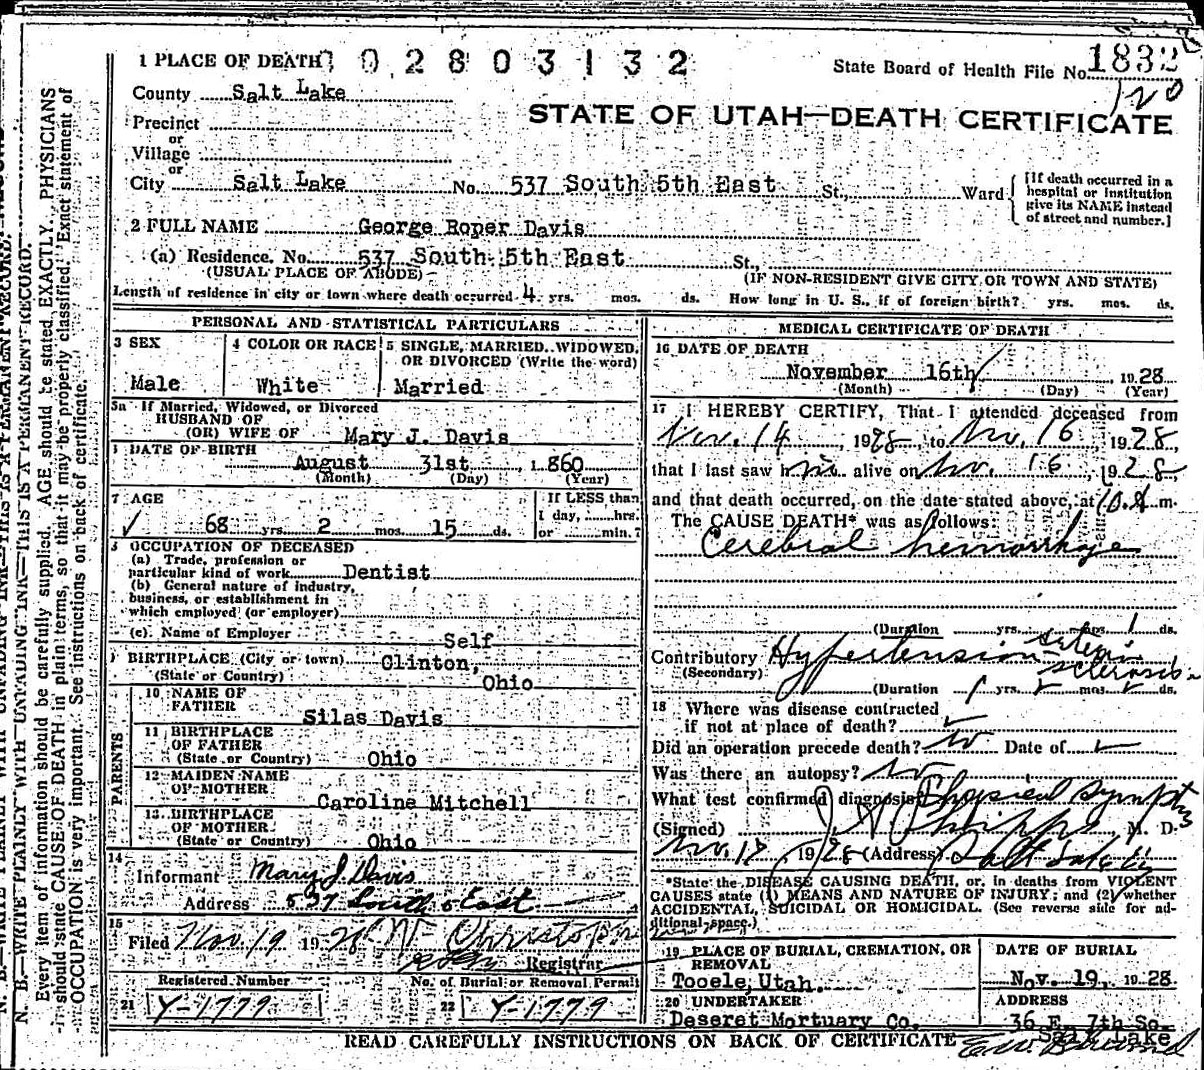 1 PLACE OF DEATH 02803132
State Board of Health File No. 1832
120
County Salt Lake
STATE OF UTAH—DEATH CERTIFICATE
Precinct
or
Village
or
City Salt Lake No. 537 South 5th East St., Ward
[If death occurred in a hospital or institution give its NAME instead of street and number.]
2 FULL NAME George Roper Davis
(a) Residence. No. 537 South 5th East St.,
(USUAL PLACE OF ABODE) (IF NON-RESIDENT GIVE CITY OR TOWN AND STATE)
Length of residence in city or town where death occurred 4 yrs. mos. ds. How long in U. S., if of foreign birth? yrs. mos. ds.
PERSONAL AND STATISTICAL PARTICULARS
3 SEX
Male
4 COLOR OR RACE
White
5 SINGLE, MARRIED, WIDOWED,
OR DIVORCED (Write the word)
Married
5a If Married, Widowed, or Divorced
HUSBAND OF
(OR) WIFE OF Mary J. Davis
DATE OF BIRTH
August 31st 1860
(Month) (Day) (Year)
7 AGE
68 yrs. 2 mos. 15 ds.
If LESS than
1 day, hrs.
or min.?
OCCUPATION OF DECEASED
(a) Trade, profession or
particular kind of work Dentist
(b) General nature of industry,
business, or establishment in
which employed (or employer)
(c) Name of Employer Self
BIRTHPLACE (City or town) Clinton,
(State or Country) Ohio
PARENTS
10 NAME OF
FATHER
Silas Davis
11 BIRTHPLACE
OF FATHER
(State or Country) Ohio
12 MAIDEN NAME
OF MOTHER
Caroline Mitchell
13 BIRTHPLACE
OF MOTHER
(State or Country) Ohio
14
Informant Mary J. Davis
Address 537 South 5 East
15
Filed Nov. 19 1928
Registrar
Registered Number No. of Burial or Removal Permit
21 Y-1779 22 Y-1779
MEDICAL CERTIFICATE OF DEATH
16 DATE OF DEATH
November 16th 1928
(Month) (Day) (Year)
17 I HEREBY CERTIFY, That I attended deceased from
Nov. 14, 1928, to Nov. 16 1928,
that I last saw him alive on Nov. 16, 1928,
and that death occurred, on the date stated above, at 10. A m.
The CAUSE DEATH* was as follows:
Cerebral hemorrhage
(Duration yrs. mos. 1 ds.
Contributory Hypertension arterio
(Secondary) sclerosis
(Duration yrs. mos. ds.
18 Where was disease contracted
if not at place of death?
Did an operation precede death? No Date of
Was there an autopsy? No
What test confirmed diagnosis? Physical Symptoms
(Signed) M. D.
Nov. 17 1928 (Address) Salt Lake City
*State the DISEASE CAUSING DEATH, or, in deaths from VIOLENT
CAUSES state (1) MEANS AND NATURE OF INJURY; and (2) whether
ACCIDENTAL, SUICIDAL OR HOMICIDAL. (See reverse side for ad-
ditional space.)
19 PLACE OF BURIAL, CREMATION, OR
REMOVAL
Tooele, Utah.
DATE OF BURIAL
Nov. 19, 1928
20 UNDERTAKER
Deseret Mortuary Co.
ADDRESS
36 E. 7th So.
Salt Lake
READ CAREFULLY INSTRUCTIONS ON BACK OF CERTIFICATE
N. B.—WRITE PLAINLY WITH UNFADING INK—THIS IS A PERMANENT RECORD.
Every item of information should be carefully supplied. AGE should be stated EXACTLY. PHYSICIANS
should state CAUSE OF DEATH in plain terms, so that it may be properly classified. Exact statement of
OCCUPATION is very important. See instructions on back of certificate.